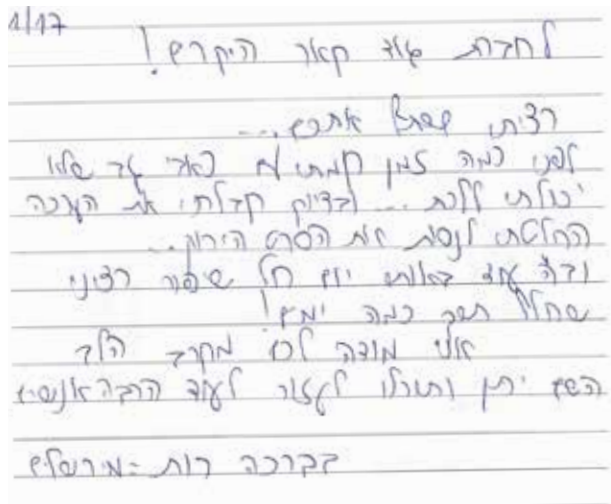 1/17
לחברת גוד קאר היקרים!
רציתי לשתף אתכם...
לפני כמה זמן קמתי עם כאבי גב שלא
יכולתי ללכת... בדיוק קבלתי את הערכה
החלטתי לנסות את הסרט הירוק...
וב"ה עוד באותו יום חל שיפור רציני
שחלף תוך כמה ימים!
אני מודה לכם מקרב הלב
השם יתן ותוכלו לעזור לעוד הרבה אנשים
בברכה רות - מירושלים